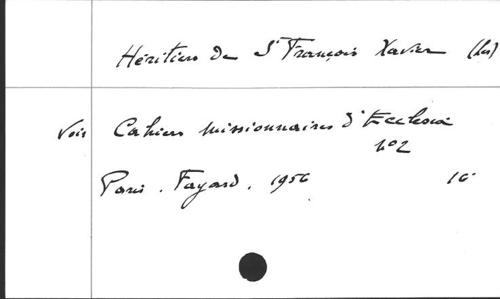 Héritiers de St François Xavier (Les)
Voir Cahiers missionnaires d'Ecclesia
N° 2
Paris. Fayard. 1956 16